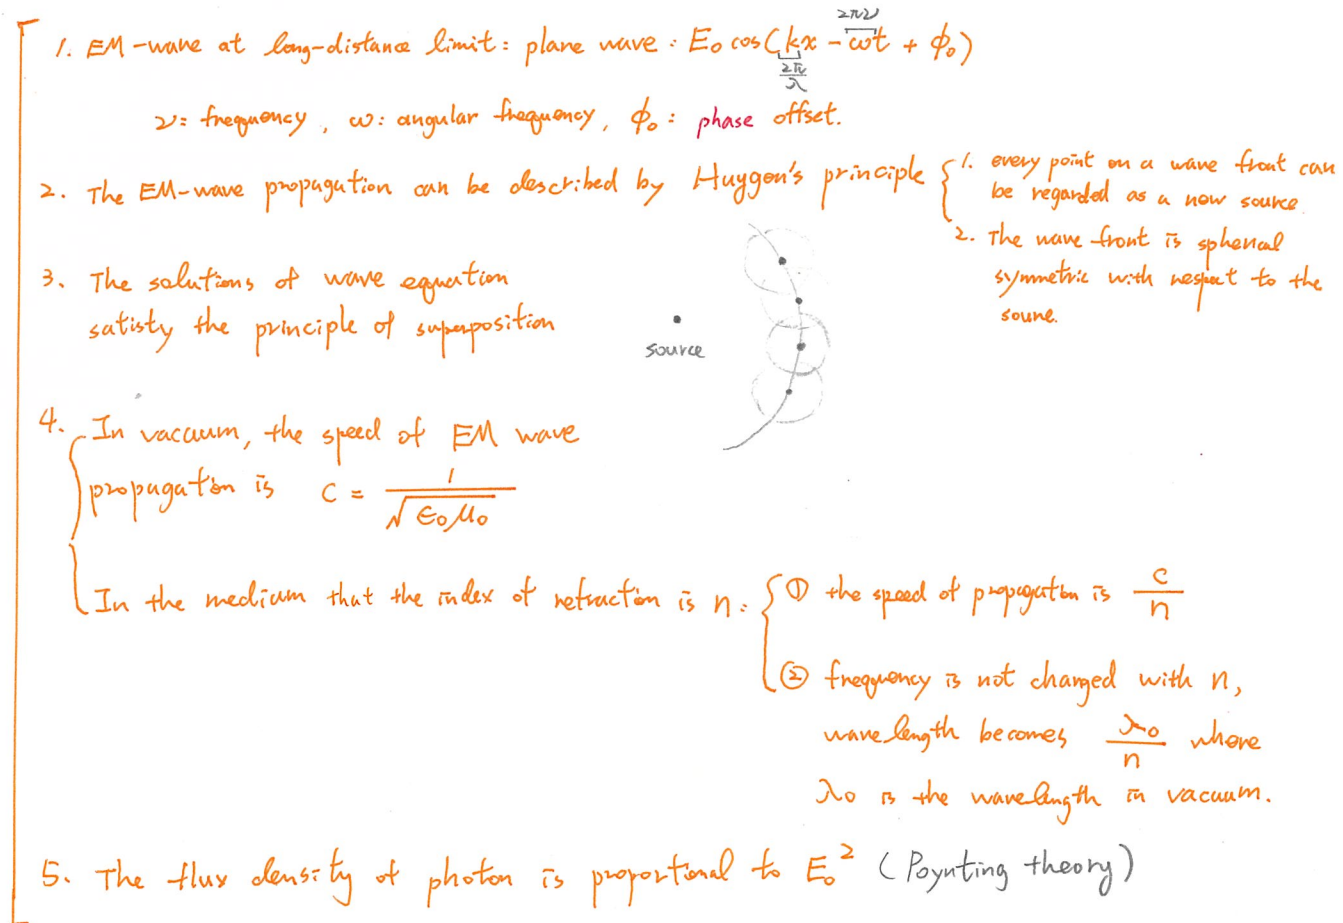 1. EM-wave at long-distance limit: plane wave: E₀ cos(kx - ωt + φ₀)
2πν
2π/λ
ν: frequency, ω: angular frequency, φ₀: phase offset.
2. The EM-wave propagation can be described by Huygen's principle
1. every point on a wave front can
be regarded as a new source
2. The wave front is spherical
symmetric with respect to the
source.
3. The solutions of wave equation
satisfy the principle of superposition
source
4. In vacuum, the speed of EM wave
propagation is C = 1/√(ε₀μ₀)
In the medium that the index of refraction is n:
① the speed of propagation is c/n
② frequency is not changed with n,
wavelength becomes λ₀/n where
λ₀ is the wavelength in vacuum.
5. The flux density of photon is proportional to E₀² (Poynting theory)